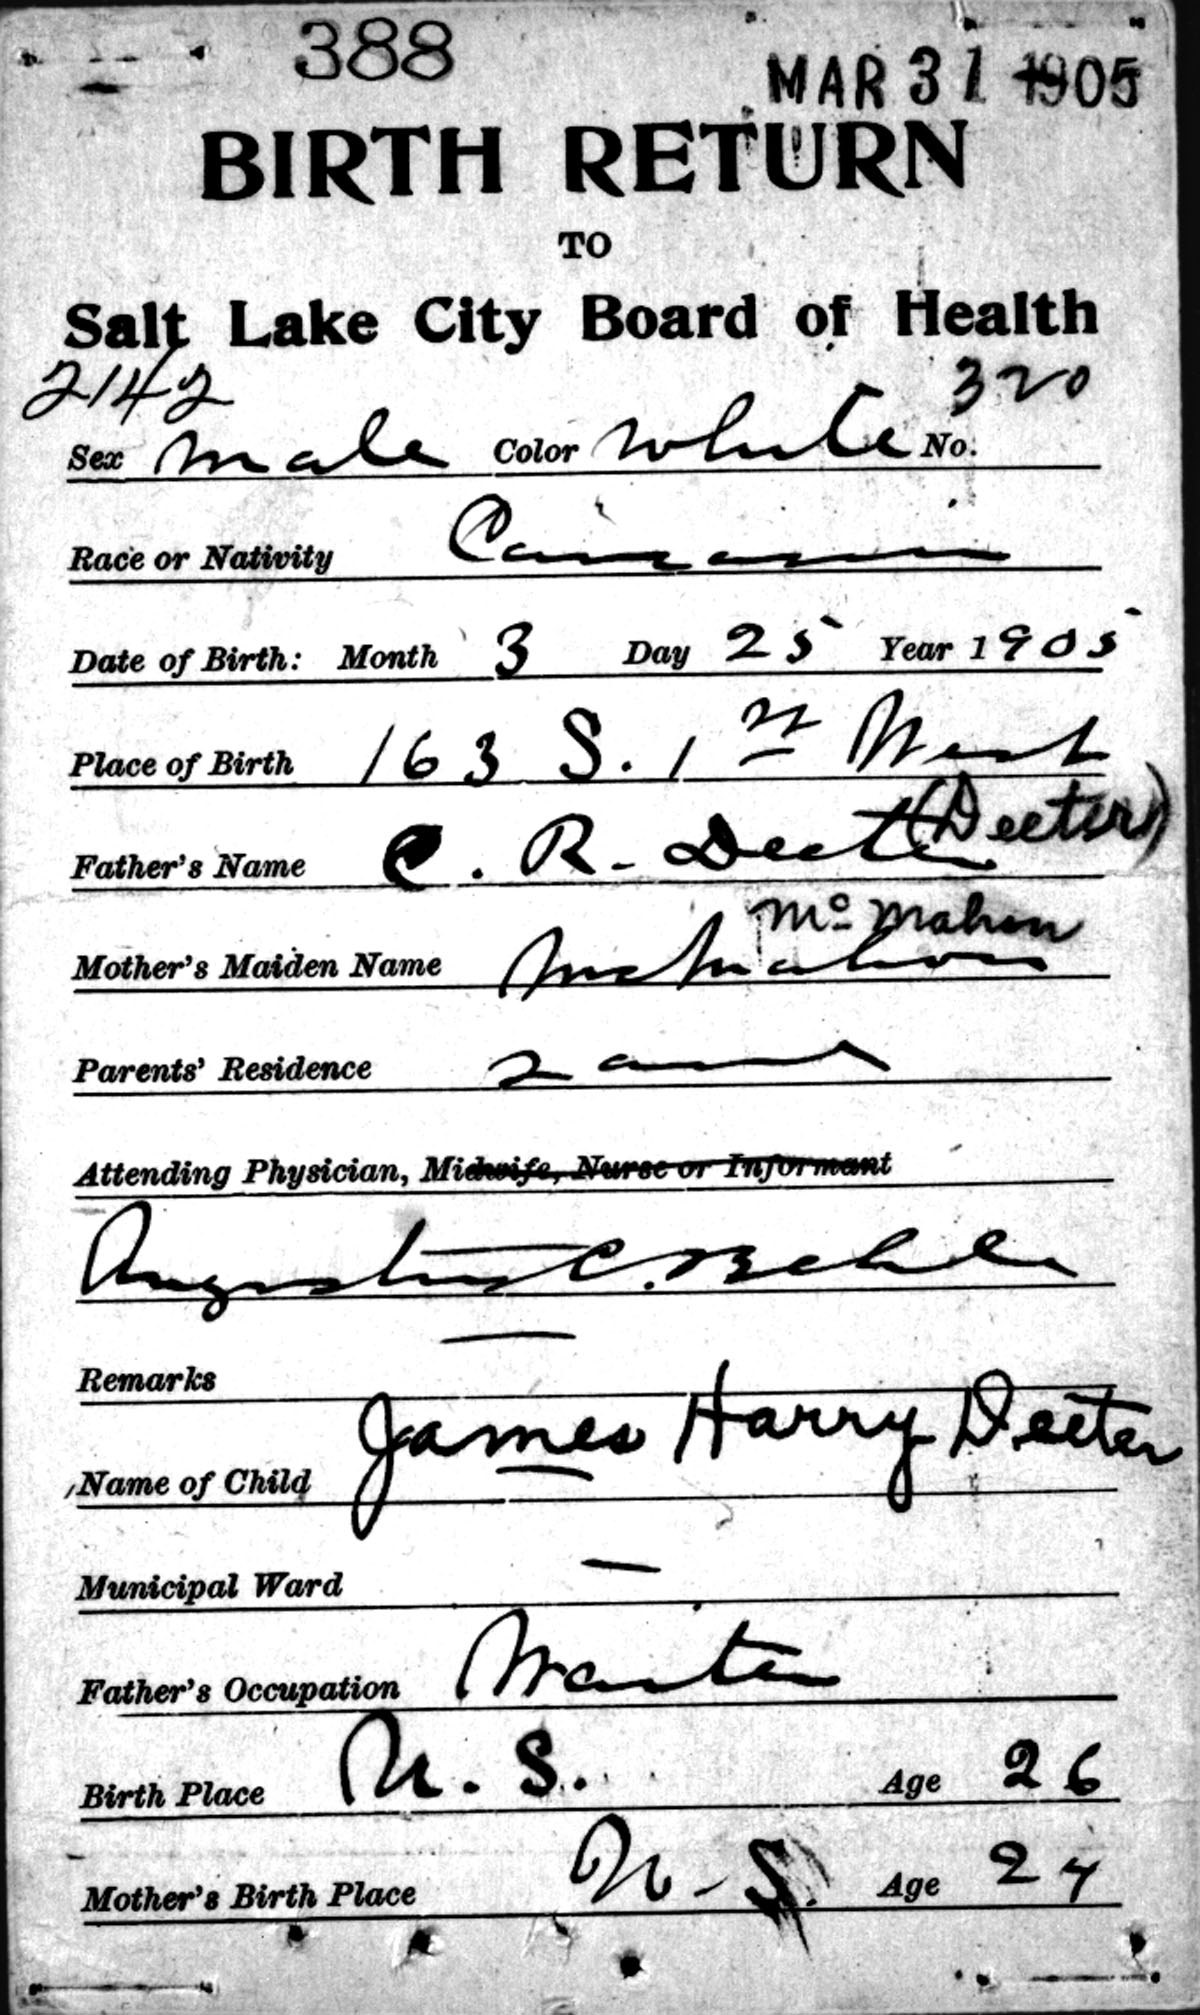 388
MAR 31 1905
BIRTH RETURN
TO
Salt Lake City Board of Health
2142 320
Sex male Color white No.
Race or Nativity
Date of Birth: Month 3 Day 25 Year 1905
Place of Birth 163 S. 1 st West
Father's Name C. R. Deeter (Deeter)
Mc Mahon
Mother's Maiden Name McMahon
Parents' Residence same
Attending Physician, Midwife, Nurse or Informant
Augustus C. Behle
Remarks —
Name of Child James Harry Deeter
Municipal Ward —
Father's Occupation Waiter
Birth Place U. S. Age 26
Mother's Birth Place U. S. Age 24